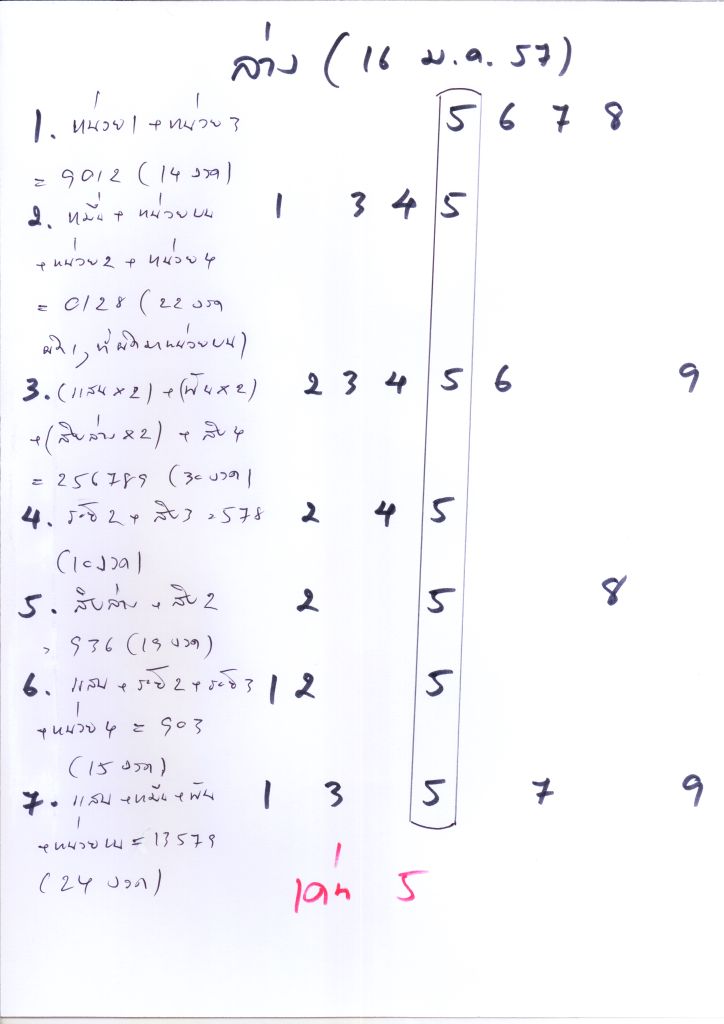 ล่าง (16 ม.ค. 57)
1. หน่วย1 + หน่วย3 5 6 7 8
= 9012 (14 งวด)
2. หมื่น + หน่วยบน 1 3 4 5
+ หน่วย2 + หน่วย4
= 0128 (22 งวด
ผิด1, ที่ผิดมาหน่วยบน)
3. (แสน×2) + (พัน×2) 2 3 4 5 6 9
+ (สิบล่าง×2) + สิบ4
= 256789 (30 งวด)
4. ร้อย2 + สิบ3 = 578 2 4 5
(10 งวด)
5. สิบล่าง + สิบ2 2 5 8
= 936 (19 งวด)
6. แสน + ร้อย2 + ร้อย3 1 2 5
+ หน่วย4 = 903
(15 งวด)
7. แสน + หมื่น + พัน 1 3 5 7 9
+ หน่วยบน = 13579
(24 งวด)
เด่น 5